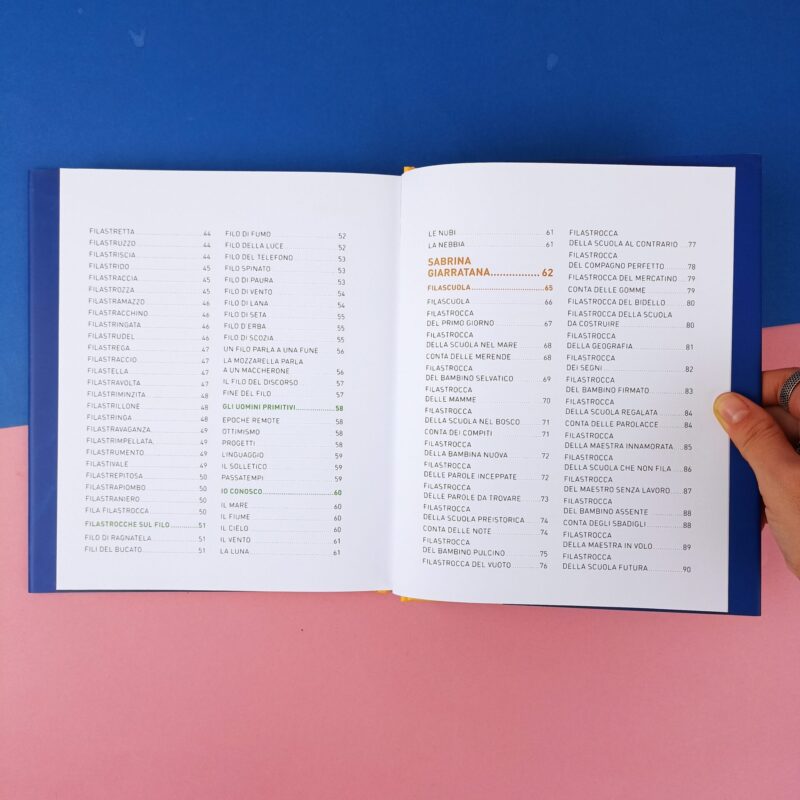 FILASTRETTA 44
FILASTRUZZO 44
FILASTRISCIA 44
FILASTRIDO 45
FILASTRACCIA 45
FILASTROZZA 45
FILASTRAMAZZO 46
FILASTRACCHINO 46
FILASTRINGATA 46
FILASTRUDEL 46
FILASTREGA 47
FILASTRACCIO 47
FILASTELLA 47
FILASTRAVOLTA 47
FILASTRIMINZITA 48
FILASTRILLONE 48
FILASTRINGA 48
FILASTRAVAGANZA 49
FILASTRIMPELLATA 49
FILASTRUMENTO 49
FILASTIVALE 49
FILASTREPITOSA 50
FILASTRAPIOMBO 50
FILASTRANIERO 50
FILA FILASTROCCA 50
FILASTROCCHE SUL FILO 51
FILO DI RAGNATELA 51
FILI DEL BUCATO 51
FILO DI FUMO 52
FILO DELLA LUCE 52
FILO DEL TELEFONO 53
FILO SPINATO 53
FILO DI PAURA 53
FILO DI VENTO 54
FILO DI LANA 54
FILO DI SETA 55
FILO D'ERBA 55
FILO DI SCOZIA 55
UN FILO PARLA A UNA FUNE 56
LA MOZZARELLA PARLA
A UN MACCHERONE 56
IL FILO DEL DISCORSO 57
FINE DEL FILO 57
GLI UOMINI PRIMITIVI 58
EPOCHE REMOTE 58
OTTIMISMO 58
PROGETTI 58
LINGUAGGIO 59
IL SOLLETICO 59
PASSATEMPI 59
IO CONOSCO 60
IL MARE 60
IL FIUME 60
IL CIELO 60
IL VENTO 61
LA LUNA 61
LE NUBI 61
LA NEBBIA 61
SABRINA
GIARRATANA 62
FILASCUOLA 65
FILASCUOLA 66
FILASTROCCA
DEL PRIMO GIORNO 67
FILASTROCCA
DELLA SCUOLA NEL MARE 68
CONTA DELLE MERENDE 68
FILASTROCCA
DEL BAMBINO SELVATICO 69
FILASTROCCA
DELLE MAMME 70
FILASTROCCA
DELLA SCUOLA NEL BOSCO 71
CONTA DEI COMPITI 71
FILASTROCCA
DELLA BAMBINA NUOVA 72
FILASTROCCA
DELLE PAROLE INCEPPATE 72
FILASTROCCA
DELLE PAROLE DA TROVARE 73
FILASTROCCA
DELLA SCUOLA PREISTORICA 74
CONTA DELLE NOTE 74
FILASTROCCA
DEL BAMBINO PULCINO 75
FILASTROCCA DEL VUOTO 76
FILASTROCCA
DELLA SCUOLA AL CONTRARIO 77
FILASTROCCA
DEL COMPAGNO PERFETTO 78
FILASTROCCA DEL MERCATINO 79
CONTA DELLE GOMME 79
FILASTROCCA DEL BIDELLO 80
FILASTROCCA DELLA SCUOLA
DA COSTRUIRE 80
FILASTROCCA
DELLA GEOGRAFIA 81
FILASTROCCA
DEI SEGNI 82
FILASTROCCA
DEL BAMBINO FIRMATO 83
FILASTROCCA
DELLA SCUOLA REGALATA 84
CONTA DELLE PAROLACCE 84
FILASTROCCA
DELLA MAESTRA INNAMORATA 85
FILASTROCCA
DELLA SCUOLA CHE NON FILA 86
FILASTROCCA
DEL MAESTRO SENZA LAVORO 87
FILASTROCCA
DEL BAMBINO ASSENTE 88
CONTA DEGLI SBADIGLI 88
FILASTROCCA
DELLA MAESTRA IN VOLO 89
FILASTROCCA
DELLA SCUOLA FUTURA 90